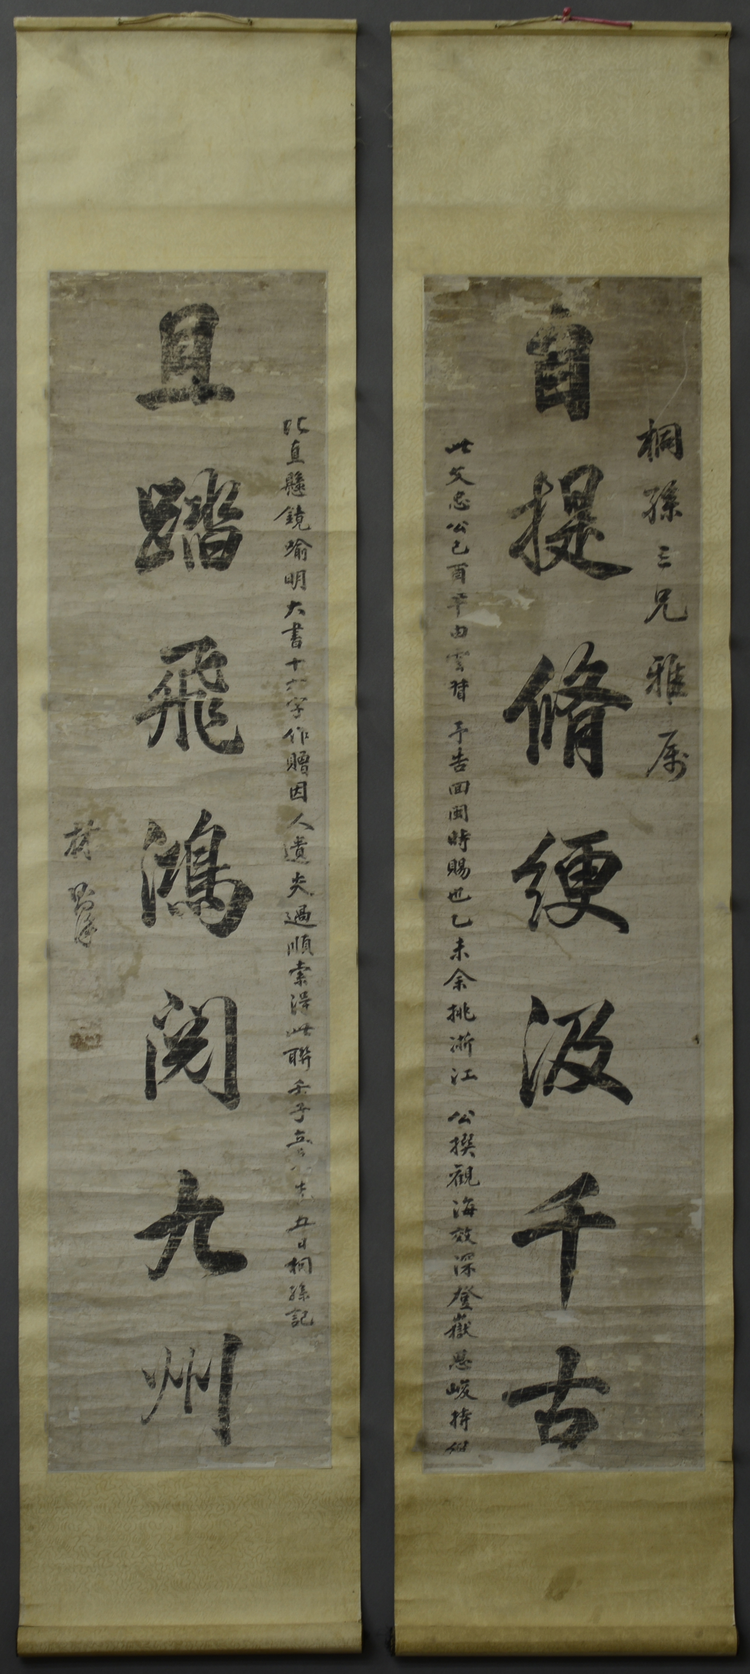 桐孫三兄雅屬
自提脩綆汲千古
此文忠公己酉年由雲督予告回閩時賜也乙未余挑浙江公撰觀海效深登嶽思峻持
心直懸鏡喻明大書十六字作贈因人遺失過順索得此聯壬子五日桐孫記
且踏飛鴻閱九州